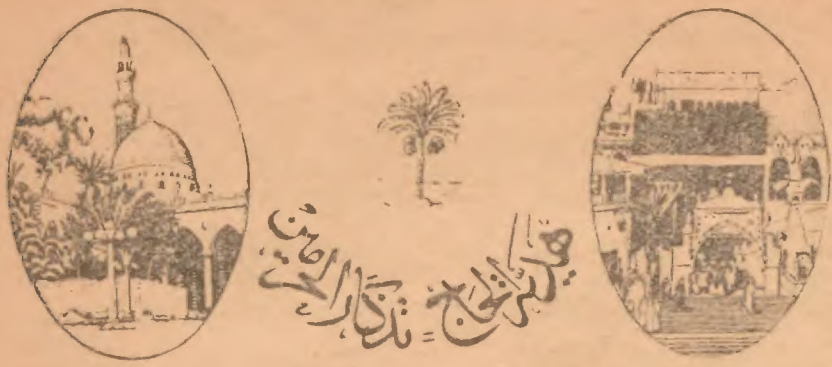 هدية الحجاج = تذكار الحرمين